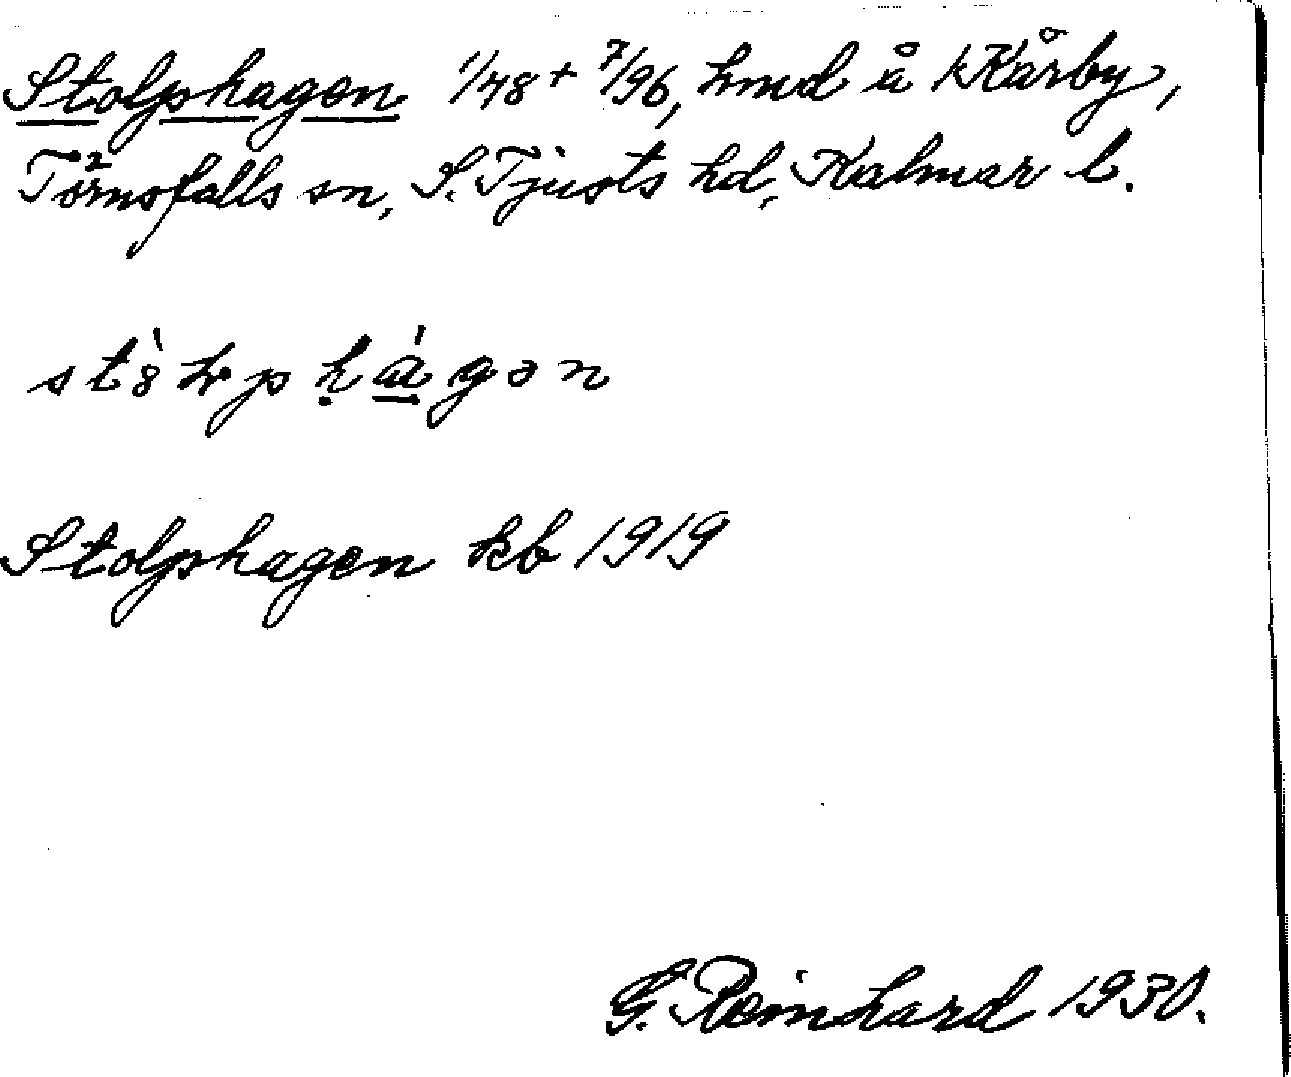 Stolphagen 1/48 + 7/96, hmd å kKårby,
Törnsfalls sn, S. Tjusts hd, Kalmar l.
Stolphagen kb 1919
G. Reinhard 1930.